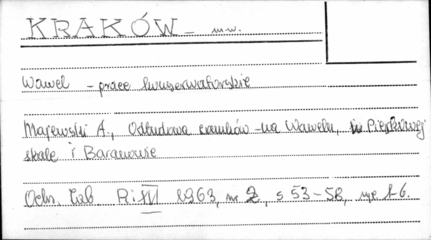 KRAKÓW - m.w.
Wawel - prace konserwatorskie
Majewski A., Odbudowa zamków - na Wawelu, w Pieskowej
skale i Baranowie
Ochr. Zab. R. XVI 1963, nr 2, s 53-58, ryc. 1-6.